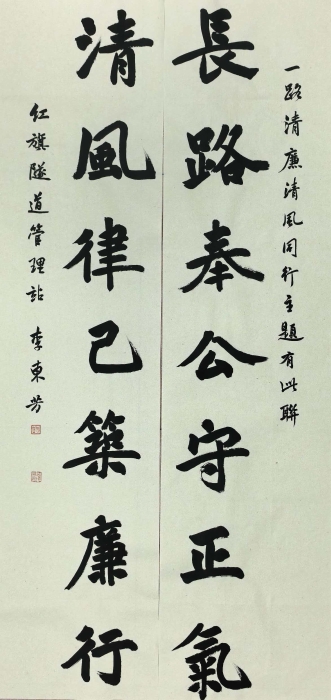 一路清廉清風同行主題有此聯
長路奉公守正氣
清風律己築廉行
紅旗隧道管理站 李東芳